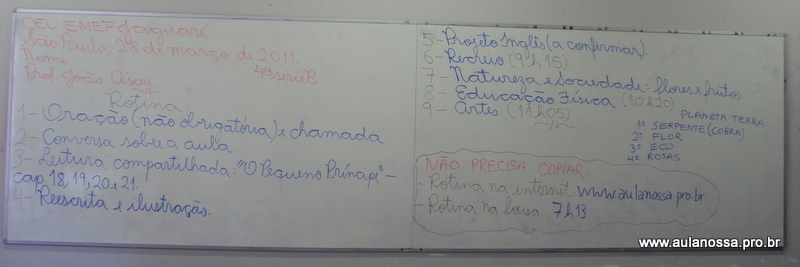 CEU EMEF Jaguaré
São Paulo, 28 de março de 2011.
Nome:
4ª série B
Prof. João César
Rotina:
1- Oração (não obrigatória) e chamada
2- Conversa sobre a aula
3- Leitura compartilhada: "O Pequeno Príncipe" -
cap. 18, 19, 20 e 21.
4- Reescrita e ilustração.
5- Projeto Inglês (a confirmar)
6- Recreio (9h15)
7- Natureza e Sociedade: flores e frutos.
8- Educação Física (10h20)
9- Artes (11h05)
PLANETA TERRA
1º SERPENTE (COBRA)
2º FLOR
3º ECO
4º ROSAS
NÃO PRECISA COPIAR:
- Rotina na internet www.aulanossa.pro.br
- Rotina na lousa 7h13
www.aulanossa.pro.br